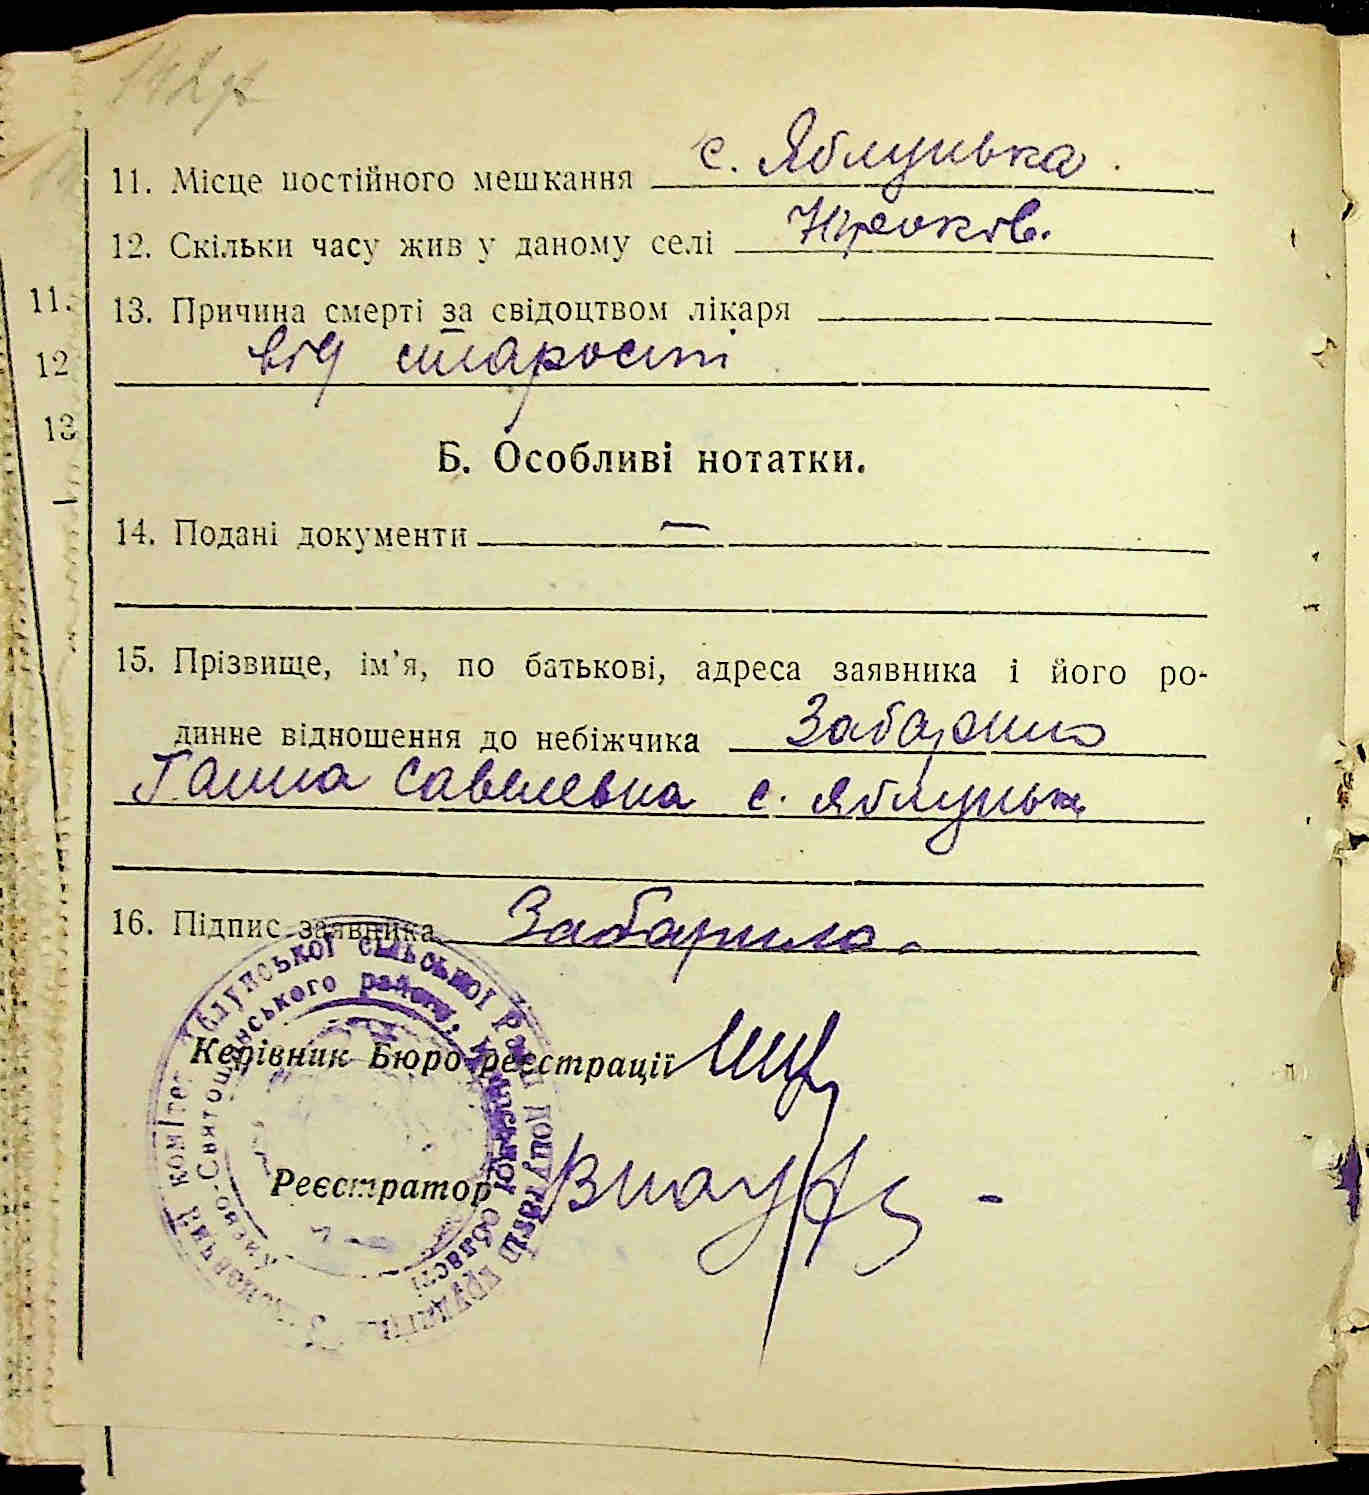 142
11. Місце постійного мешкання с. Яблунька
12. Скільки часу жив у даному селі
13. Причина смерті за свідоцтвом лікаря
від старості
Б. Особливі нотатки.
14. Подані документи —
15. Прізвище, ім'я, по батькові, адреса заявника і його ро-
динне відношення до небіжчика Забарило
Ганна Савелевна с. Яблунька
16. Підпис заявника Забарило.
Керівник Бюро реєстрації
Реєстратор
11.
12
13